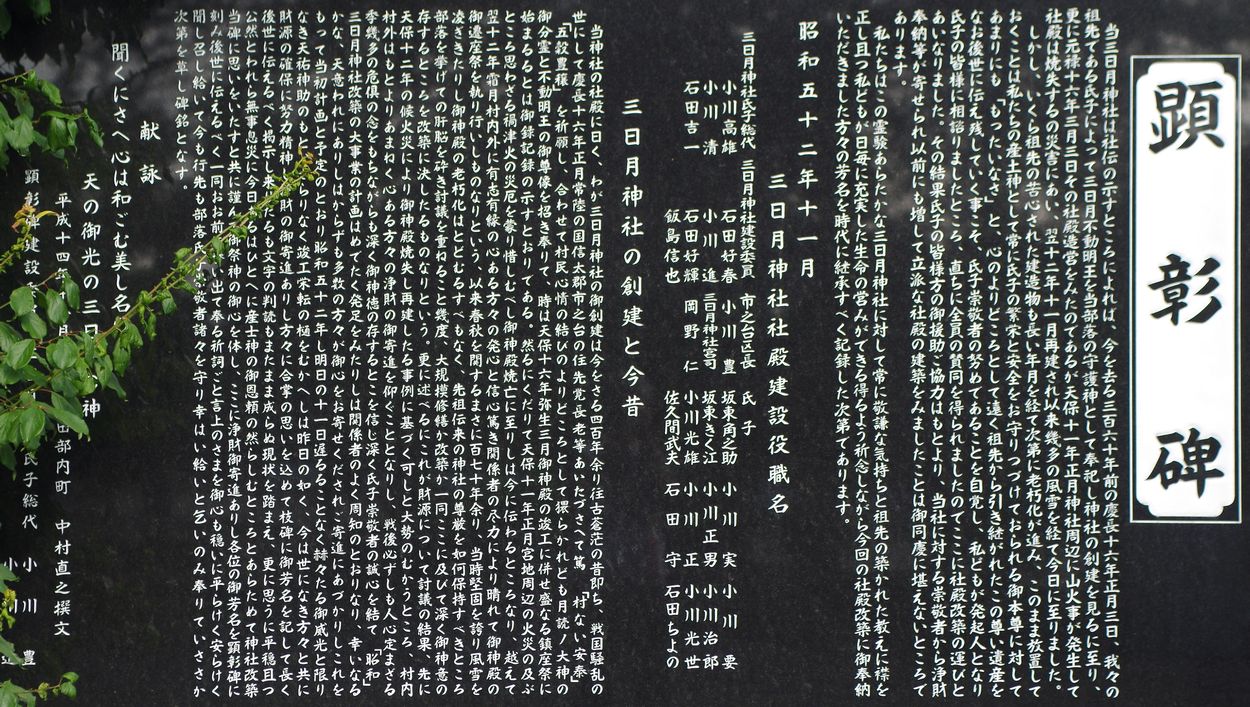 顕彰碑
当三日月神社は社伝の示すところによれば、今を去る三百六十年前の慶長十六年正月三日、我々の
祖先である氏子によって三日月不動明王を当部落の守護神として奉祀し神社の創建を見るに至り、
更に元禄十六年三月三日その社殿造営をみたのであるが天保十一年正月神社周辺に山火事が発生して
社殿は焼失するの災害にあい、翌十二年十一月再建され以来幾多の風雪を経て今日に至りました。
しかし、いくら祖先の苦心された建造物も長い年月を経て次第に老朽化が進み、このまま放置して
おくことは私たちの産土神として常に氏子の繁栄と安全をお守りつづけておられる御本尊に対して
あまりにも「もったいなさ」と、心のよりどころとして遠く祖先から引き継がれたこの尊い遺産を
なお後世に伝え残していく事こそ、氏子崇敬者の努めであることを自覚し、私どもが発起人となり
氏子の皆様に相諮りましたところ、直ちに全員の賛同を得られましたのでここに社殿改築の運びと
あいなりました。その結果氏子の皆様方の御援助ご協力はもとより、当社に対する崇敬者から浄財
奉納等が寄せられ以前にも増して立派な社殿の建築をみましたことは御同慶に堪えないところで
あります。
私たちはこの霊験あらたかな三日月神社に対して常に敬謙な気持ちと祖先の築かれた教えに襟を
正し且つ私どもが日毎に充実した生命の営みができる得るよう祈念しながら今回の社殿改築に御奉納
いただきました方々の芳名を時代に継承すべく記録した次第であります。
昭和五十二年十一月
三日月神社社殿建設役職名
三日月神社氏子総代 三日月神社建設委員 市之台区長 氏子
小川高雄 石田好春 小川豊 坂東角之助 小川実 小川要
小川清 小川進 三日月神社宮司 坂東きく江 小川正男 小川治郎
石田吉一 石田好輝 岡野仁 小川光雄 小川正 小川光世
飯島信也 佐久間武夫 石田守 石田ちよの
三日月神社の創建と今昔
当神社の社殿に曰く、わが三日月神社の御創建は今をさる四百年余り往古蒼茫の昔即ち、戦国騒乱の
世にして慶長十六年正月常陸の国信太郡市之台の住先覚長老等あいたづさへて篤、村ない安泰」
「五穀豊穣」を祈願し、合わせて村民心情の結びのよりどころとして猥らかれども月読ノ大神の
御分霊と不動明王の御尊像を招き奉りて、時は天保十六年弥生三月御神殿の竣工に併せ盛なる鎮座祭に
始まるとは御録記録の示すとおりである。然るにくだりて天保十一年正月宮地周辺の火災の及ぶ
ところ思わざる禍津火の災厄を蒙り惜しむべし御神殿焼亡に至りしは今に伝わるところなり、越えて
翌十二年霜月村内外に有志有縁の心ある方々の発心と信心篤き関係者の尽力により晴れて御神殿の
御遷座祭を執り行いしものなりという、以来春秋を閲するまさに百七十年余り、当時堅固を誇り風雪を
凌ぎきたりし御神殿の老朽化はとどむるすべもなく、先祖伝来の神社の尊厳を如何保持すべきところ
部落を挙げての肝脳を砕き討議を重ねること幾度、大規模修繕か改築か一同ここに及びて深く御神意の
存するところを改築に決したるものなりという。更に述べるにこれが財源について討議の結果、先に
天保十二年の候火災により御神殿焼失し再建したる事例に基づく可しと大勢のむかうところ、村内
村外はもとよりあまねく心ある方々の浄財の御寄進を仰ぐこととなりし、戦後必ずしも人心定まざる
季幾多の危惧の念をもちながらも深く御神徳の存するところを信じ深く氏子崇敬者の誠心を結て「昭和」
三日月神社改築の大事業の計画はめでたく発足をみたりしは関係者のよく周知のとおりなり、幸いなる
かな、天意われにありしはからずも多数の方々が御心をお寄せくだされご寄進にあづかりしこれを
もって当初計画と予定のとおり昭和五十二年し明日の十一日遅るることなく赫々たる御威光と限り
なき天祐神助のもと
財源の確保に努力精神
後世に伝えるべく掲示し来
公然とわれら無事息災に今日あるはひとへに産土神の御恩頼の然らしむところとあらためて神社改築
当碑に思いをいたすと共に謹んで御祭神の御心を体し、ここに浄財御寄進ありし各位の御芳名を顕彰碑に
刻み後世に伝えるべく一同おお前に い出て奉る祈詞ごと言上のさまを御心も穏いに平らけく安らけく
聞し召し給いて今も行先も部落氏子崇敬者諸々を守り幸はい給いと乞いのみ奉りていささか
次第を草し碑銘となす。
献詠
聞くにさへ心は和ごむ美し名
天の御光の三日 神
平成十四年 月 田部内町 中村直之撰文
顕彰碑建設 氏子総代 小川豊
小川進